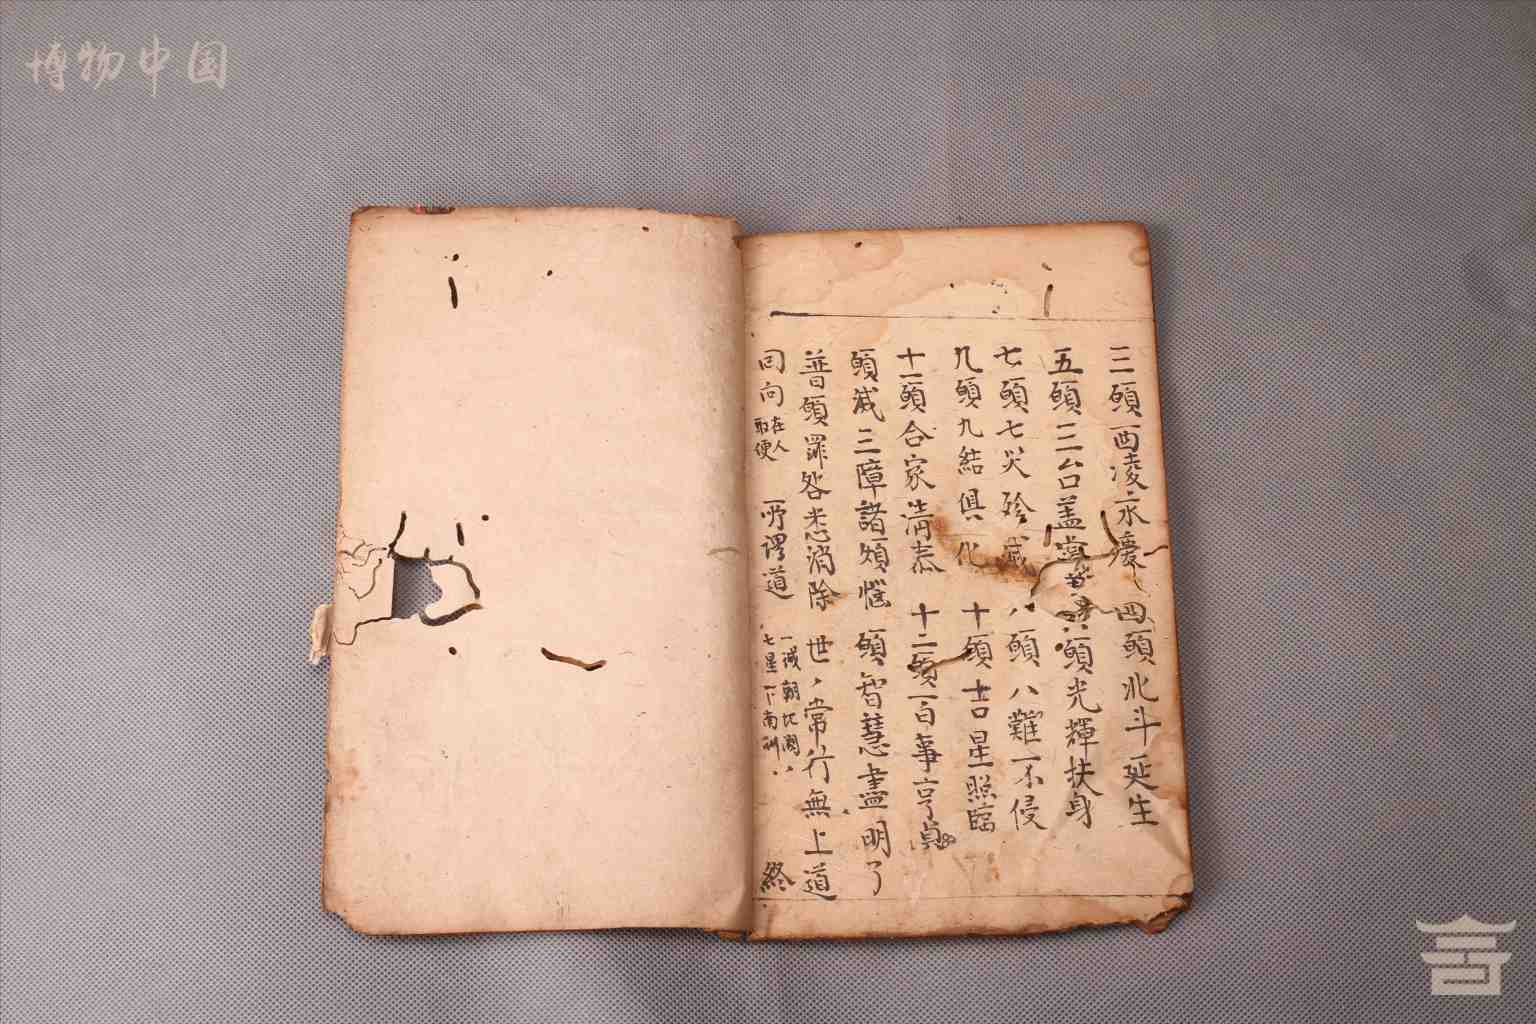 博物中国
三願西凌永慶 四願北斗延生
五願三台盖 願光輝扶身
七願七災殄滅 八願八難不侵
九願九結俱化 十願吉星照臨
十一願合家清泰 十二願百事亨貞
願滅三障諸煩惱 願智慧盡明了
普願罪咎悉消除 世々常行無上道
回向 在人取便 所謂道 終